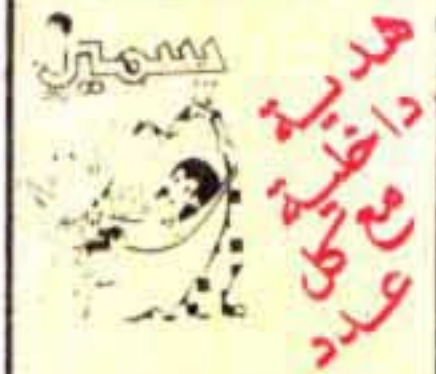 سمير
هدية
داخلية
مع كل
عدد